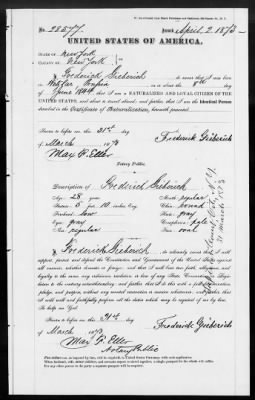 No. 28577.
Issued April 2. 1873
UNITED STATES OF AMERICA.
STATE OF New York
COUNTY OF New York
I Frederick Gieberich, do swear that I was born
in Prussia on the 8th day
of June 1844 that I am a NATURALIZED AND LOYAL CITIZEN OF THE
UNITED STATES, and about to travel abroad; and further that I am the Identical Person
described in the Certificate of Naturalization, herewith presented.
Sworn to before me this 31st day
of March 1873
Frederick Gieberich
Max P. Eller
Notary Public.
Description of Frederick Gieberich
Age: 28 years
Mouth: regular
Stature: 5 ft 10 inches Eng.
Chin: round
Forehead: low
Hair: gray
Eyes: gray
Complexion: pale
Nose: regular
Face: oval
I, Frederick Gieberich, do solemnly swear that I will
support, protect and defend the Constitution and Government of the United States against
all enemies, whether domestic or foreign; and that I will bear true faith, allegiance and
loyalty to the same, any ordinance, resolution or law of any State, Convention or Legis-
lature to the contrary notwithstanding; and further that I do this with a full determination,
pledge, and purpose, without any mental reservation or evasion whatsoever; and further that
I will well and faithfully perform all the duties which may be required of me by law.
So help me God.
Sworn to before me this 31st day
of March 1873
Frederick Gieberich
Max P. Eller
Notary Public